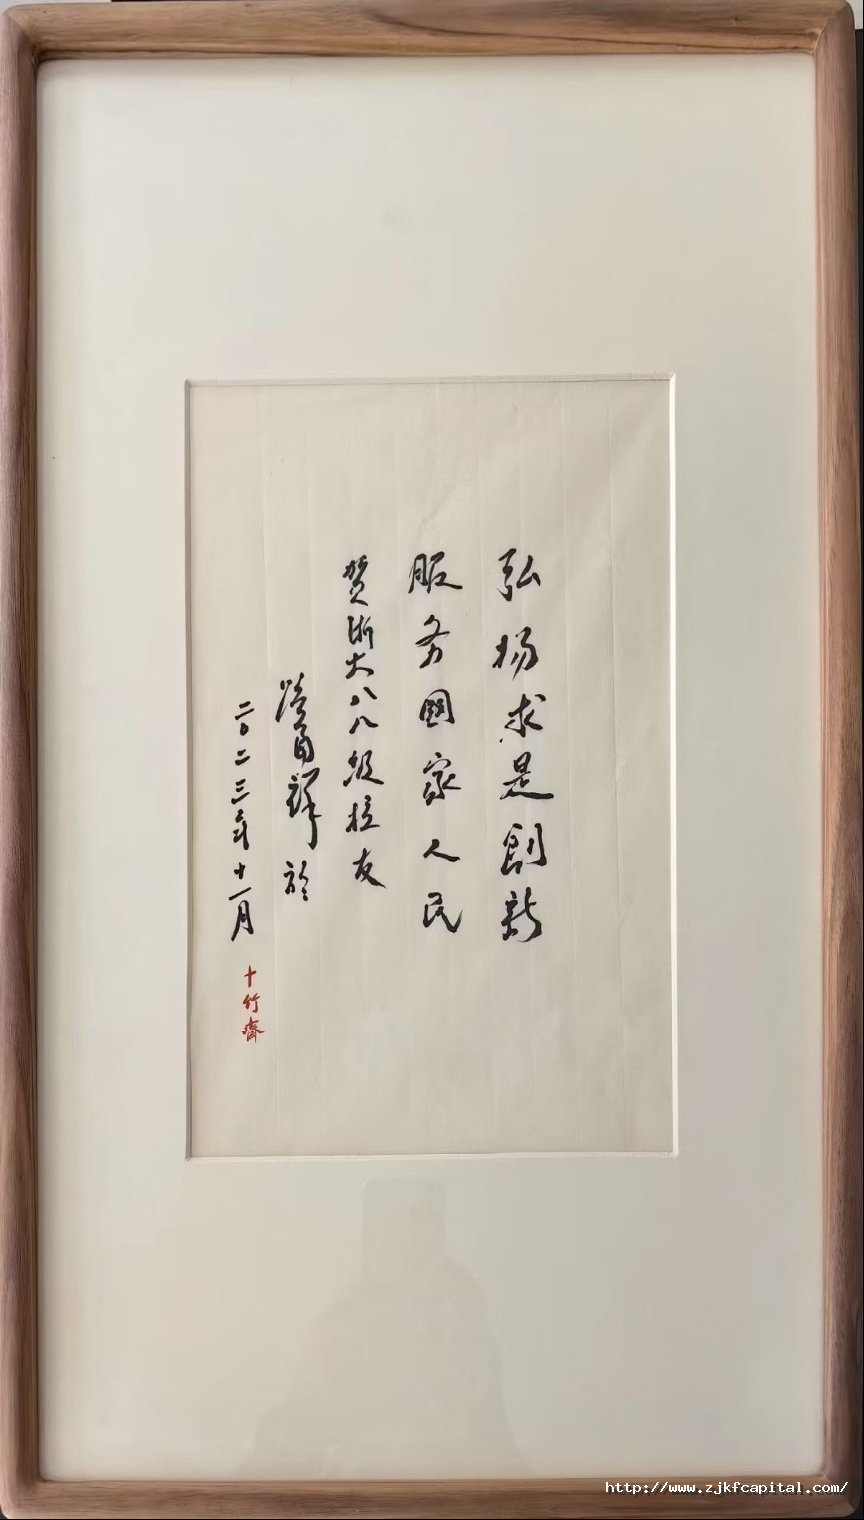 弘扬求是創新
服务國家人民
贺浙大八八级校友
路甬祥 於
二〇二三年十一月
十竹齋
http://www.zjkfcapital.com/